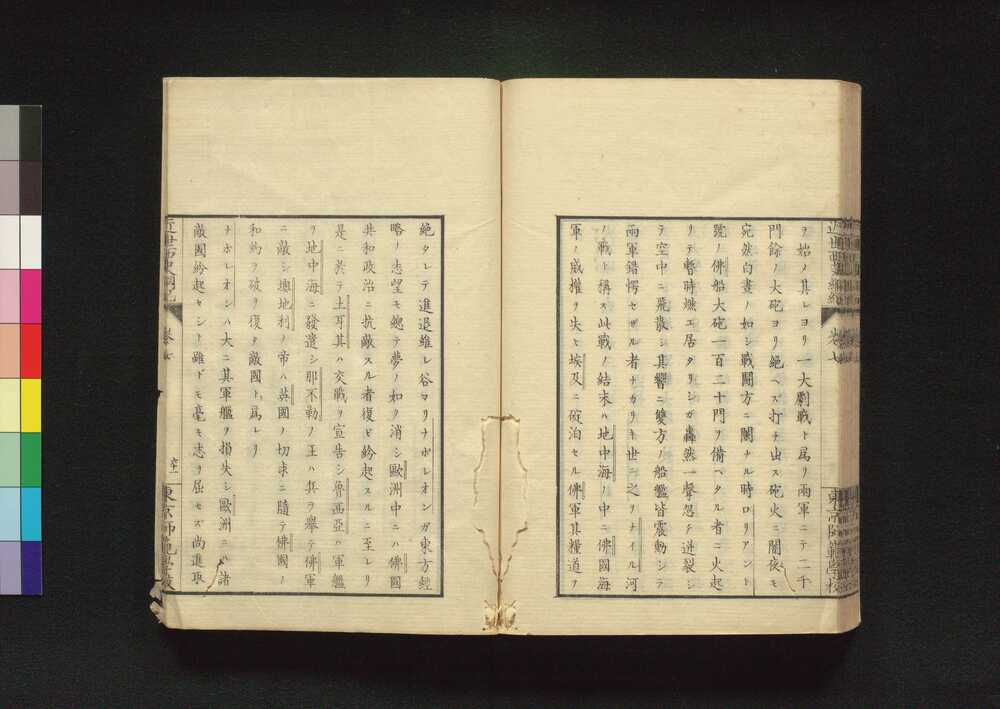 ヲ始ノ其レヨリ一大劇戰ト爲リ兩軍ニテ二千
門餘ノ大砲ヨリ絶ヘズ打チ出ス砲火ニ闇夜モ
宛然白晝ノ如シ戰鬪方ニ闌ナル時ロリアント
號ノ佛船大砲一百二十門ヲ備ヘタル者ニ火起
リテ暫時燃エ居タリシガ轟然一聲忽チ迸裂シ
テ空中ニ飛散シ其響ニ雙方ノ船艦皆震動シテ
兩軍錯愕セザル者ナカリキ世ニ之ヲナイル河
ノ戰ト稱ス此戰ノ結末ハ地中海ノ中ニ佛國海
軍ノ威權ヲ失ヒ埃及ニ碇泊セル佛軍其糧道ヲ
東京師範學校
絶タレテ進退維レ谷マリナポレオンガ東方經
略ノ志望モ總テ夢ノ如ク消シ歐洲中ニハ佛國
共和政治ニ抗敵スル者復ビ紛起スルニ至レリ
是ニ於テ土耳其ハ交戰ヲ宣告シ魯西亞ハ軍艦
ヲ地中海ニ發遣シ那不勒ノ王ハ兵ヲ擧テ佛軍
ニ敵シ墺地利ノ帝ハ英國ノ切求ニ隨テ佛國ノ
和約ヲ破リ復タ敵國ト爲レリ
ナポレオンハ大ニ其軍艦ヲ損失シ歐洲ニハ諸
敵國紛起セシト雖ドモ毫モ志ヲ屈セズ尚進取
近世西史綱紀 卷七 六十一 東京師範學校